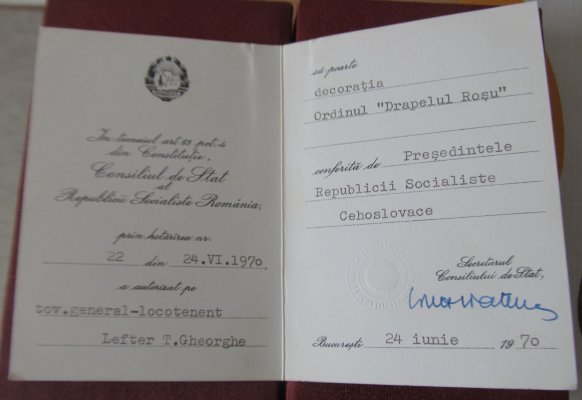 In temeiul art 63 pct. 4
din Constituție,
Consiliul de Stat
al
Republicii Socialiste România,
prin hotărîrea nr.
22 din 24.VI.1970,
a autorizat pe
tov.general-locotenent
Lefter T.Gheorghe
să poarte
decorația
Ordinul "Drapelul Roșu"
conferită de Președintele
Republicii Socialiste
Cehoslovace
Secretarul
Consiliului de Stat,
București 24 iunie 1970